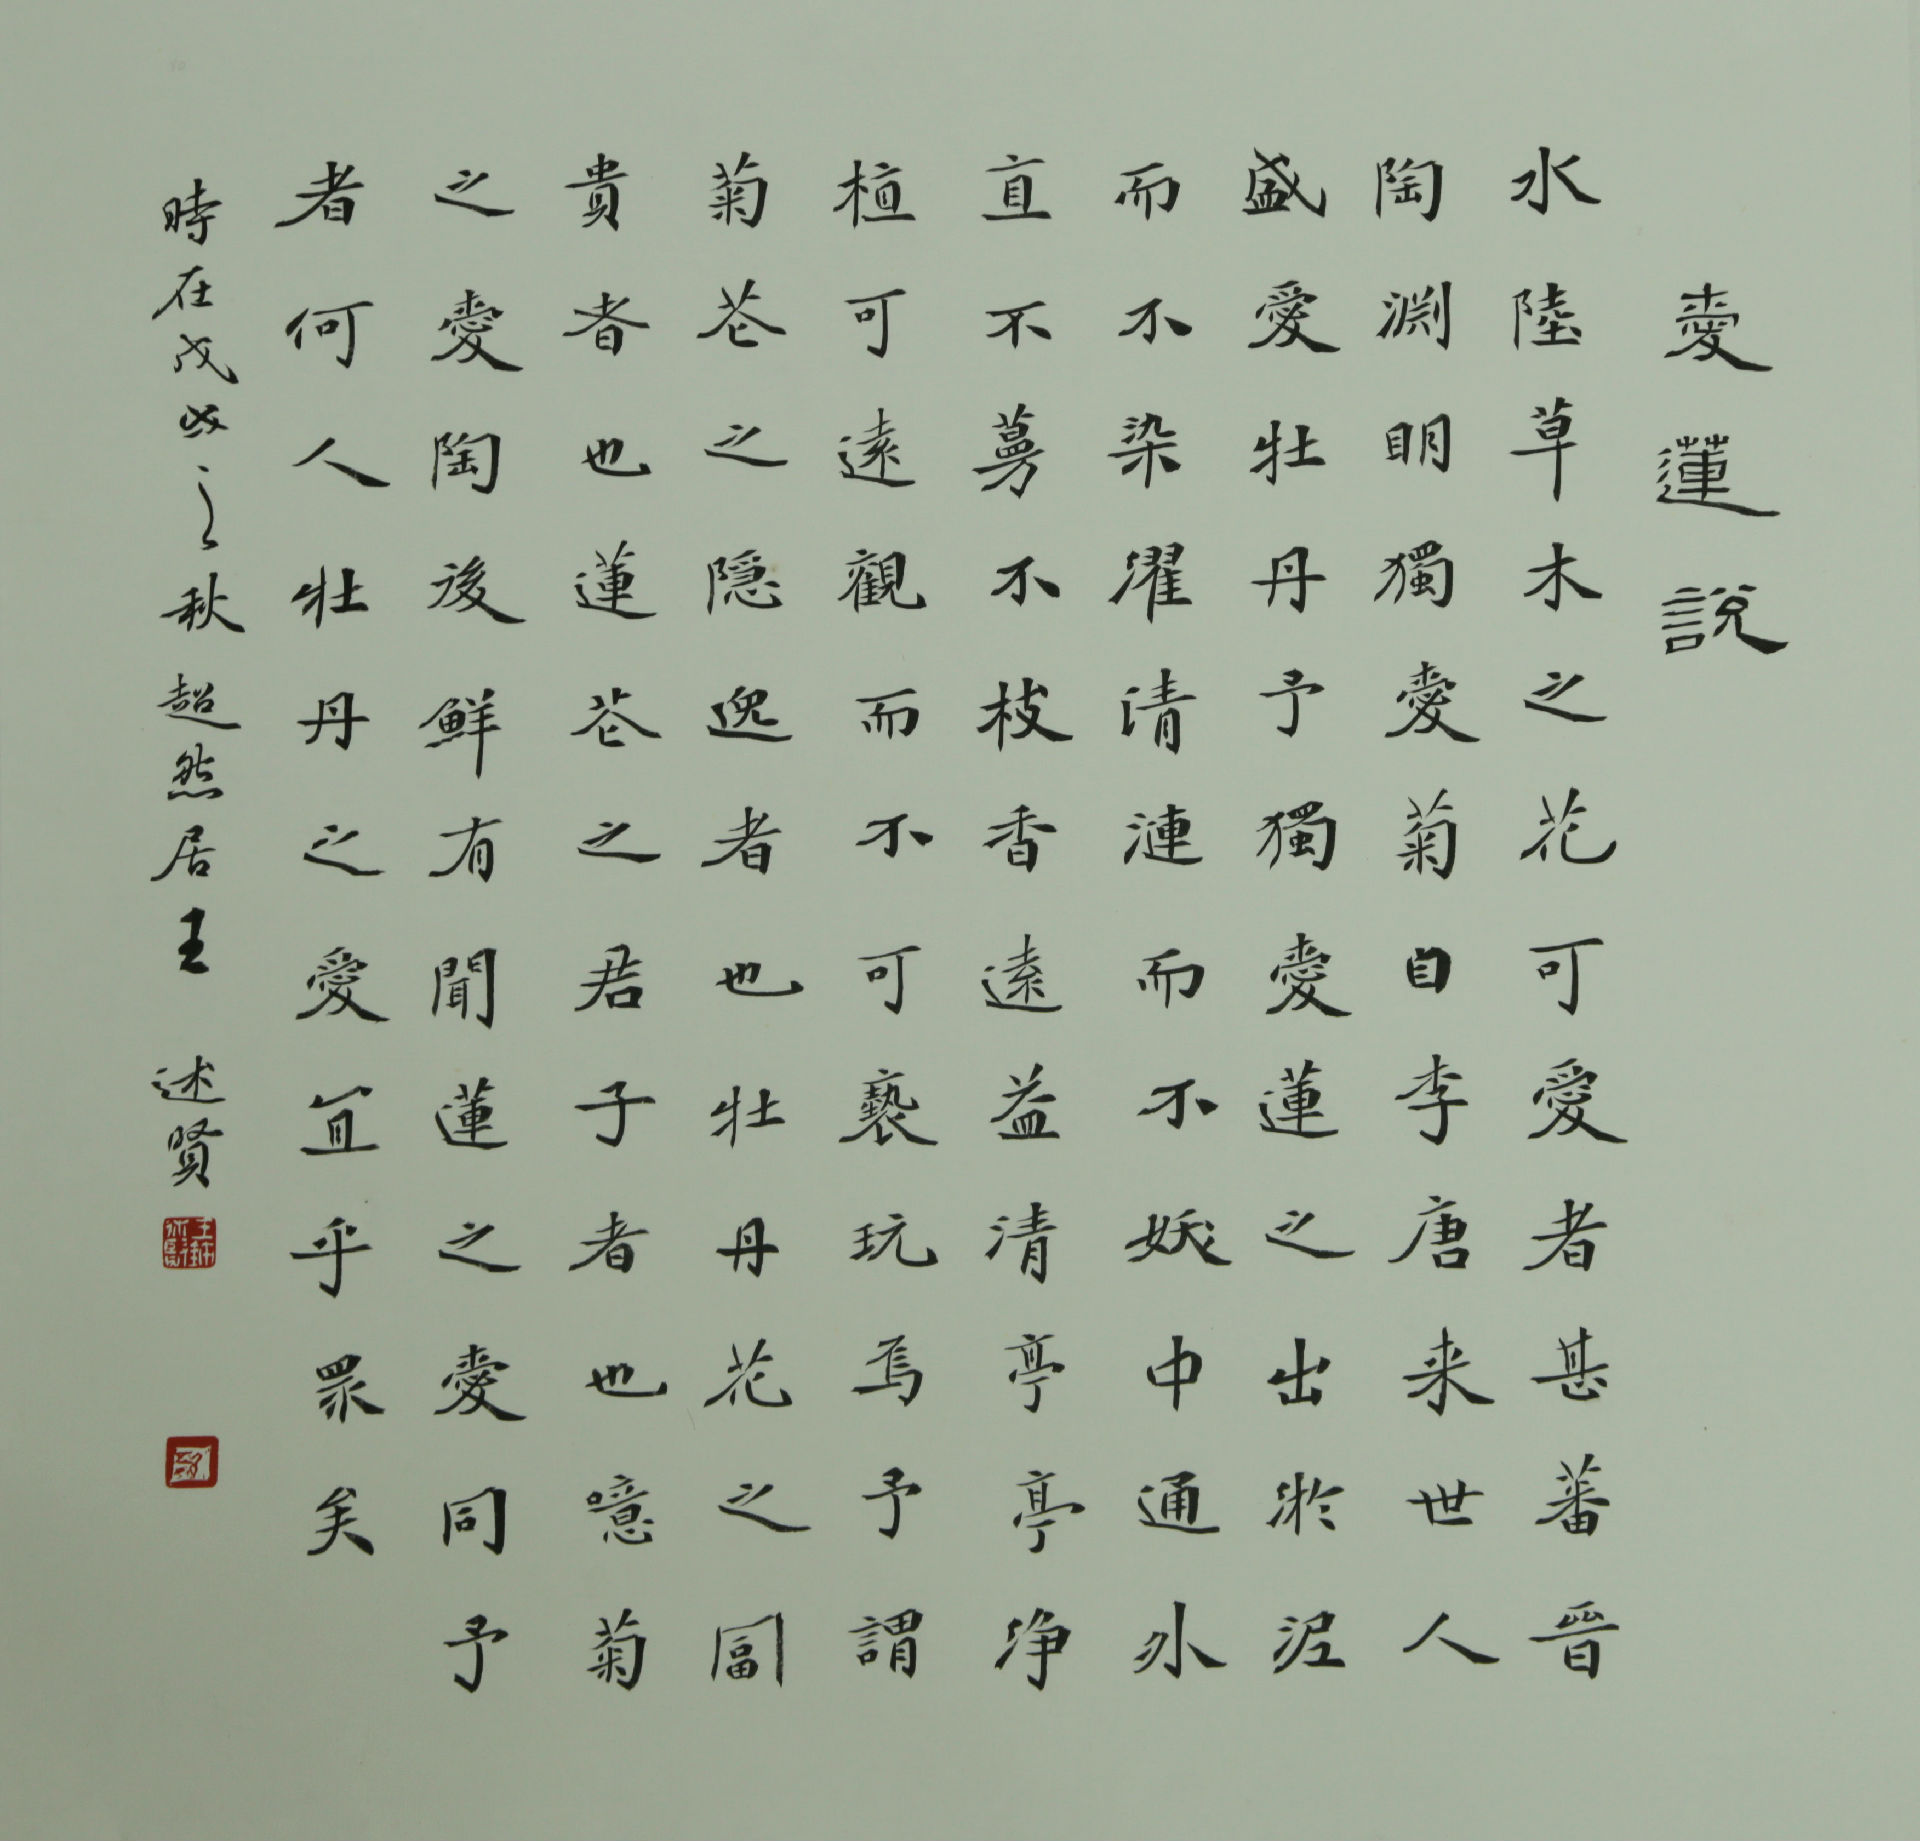 愛蓮說
水陸草木之花可愛者甚蕃晉
陶淵明獨愛菊自李唐来世人
盛愛牡丹予獨愛蓮之出淤泥
而不染濯清漣而不妖中通外
直不蔓不枝香遠益清亭亭净
植可遠觀而不可褻玩焉予謂
菊花之隱逸者也牡丹花之冨
貴者也蓮花之君子者也噫菊
之愛陶後鮮有聞蓮之愛同予
者何人牡丹之愛宜乎眾矣
時在戊戌之秋超然居王述賢